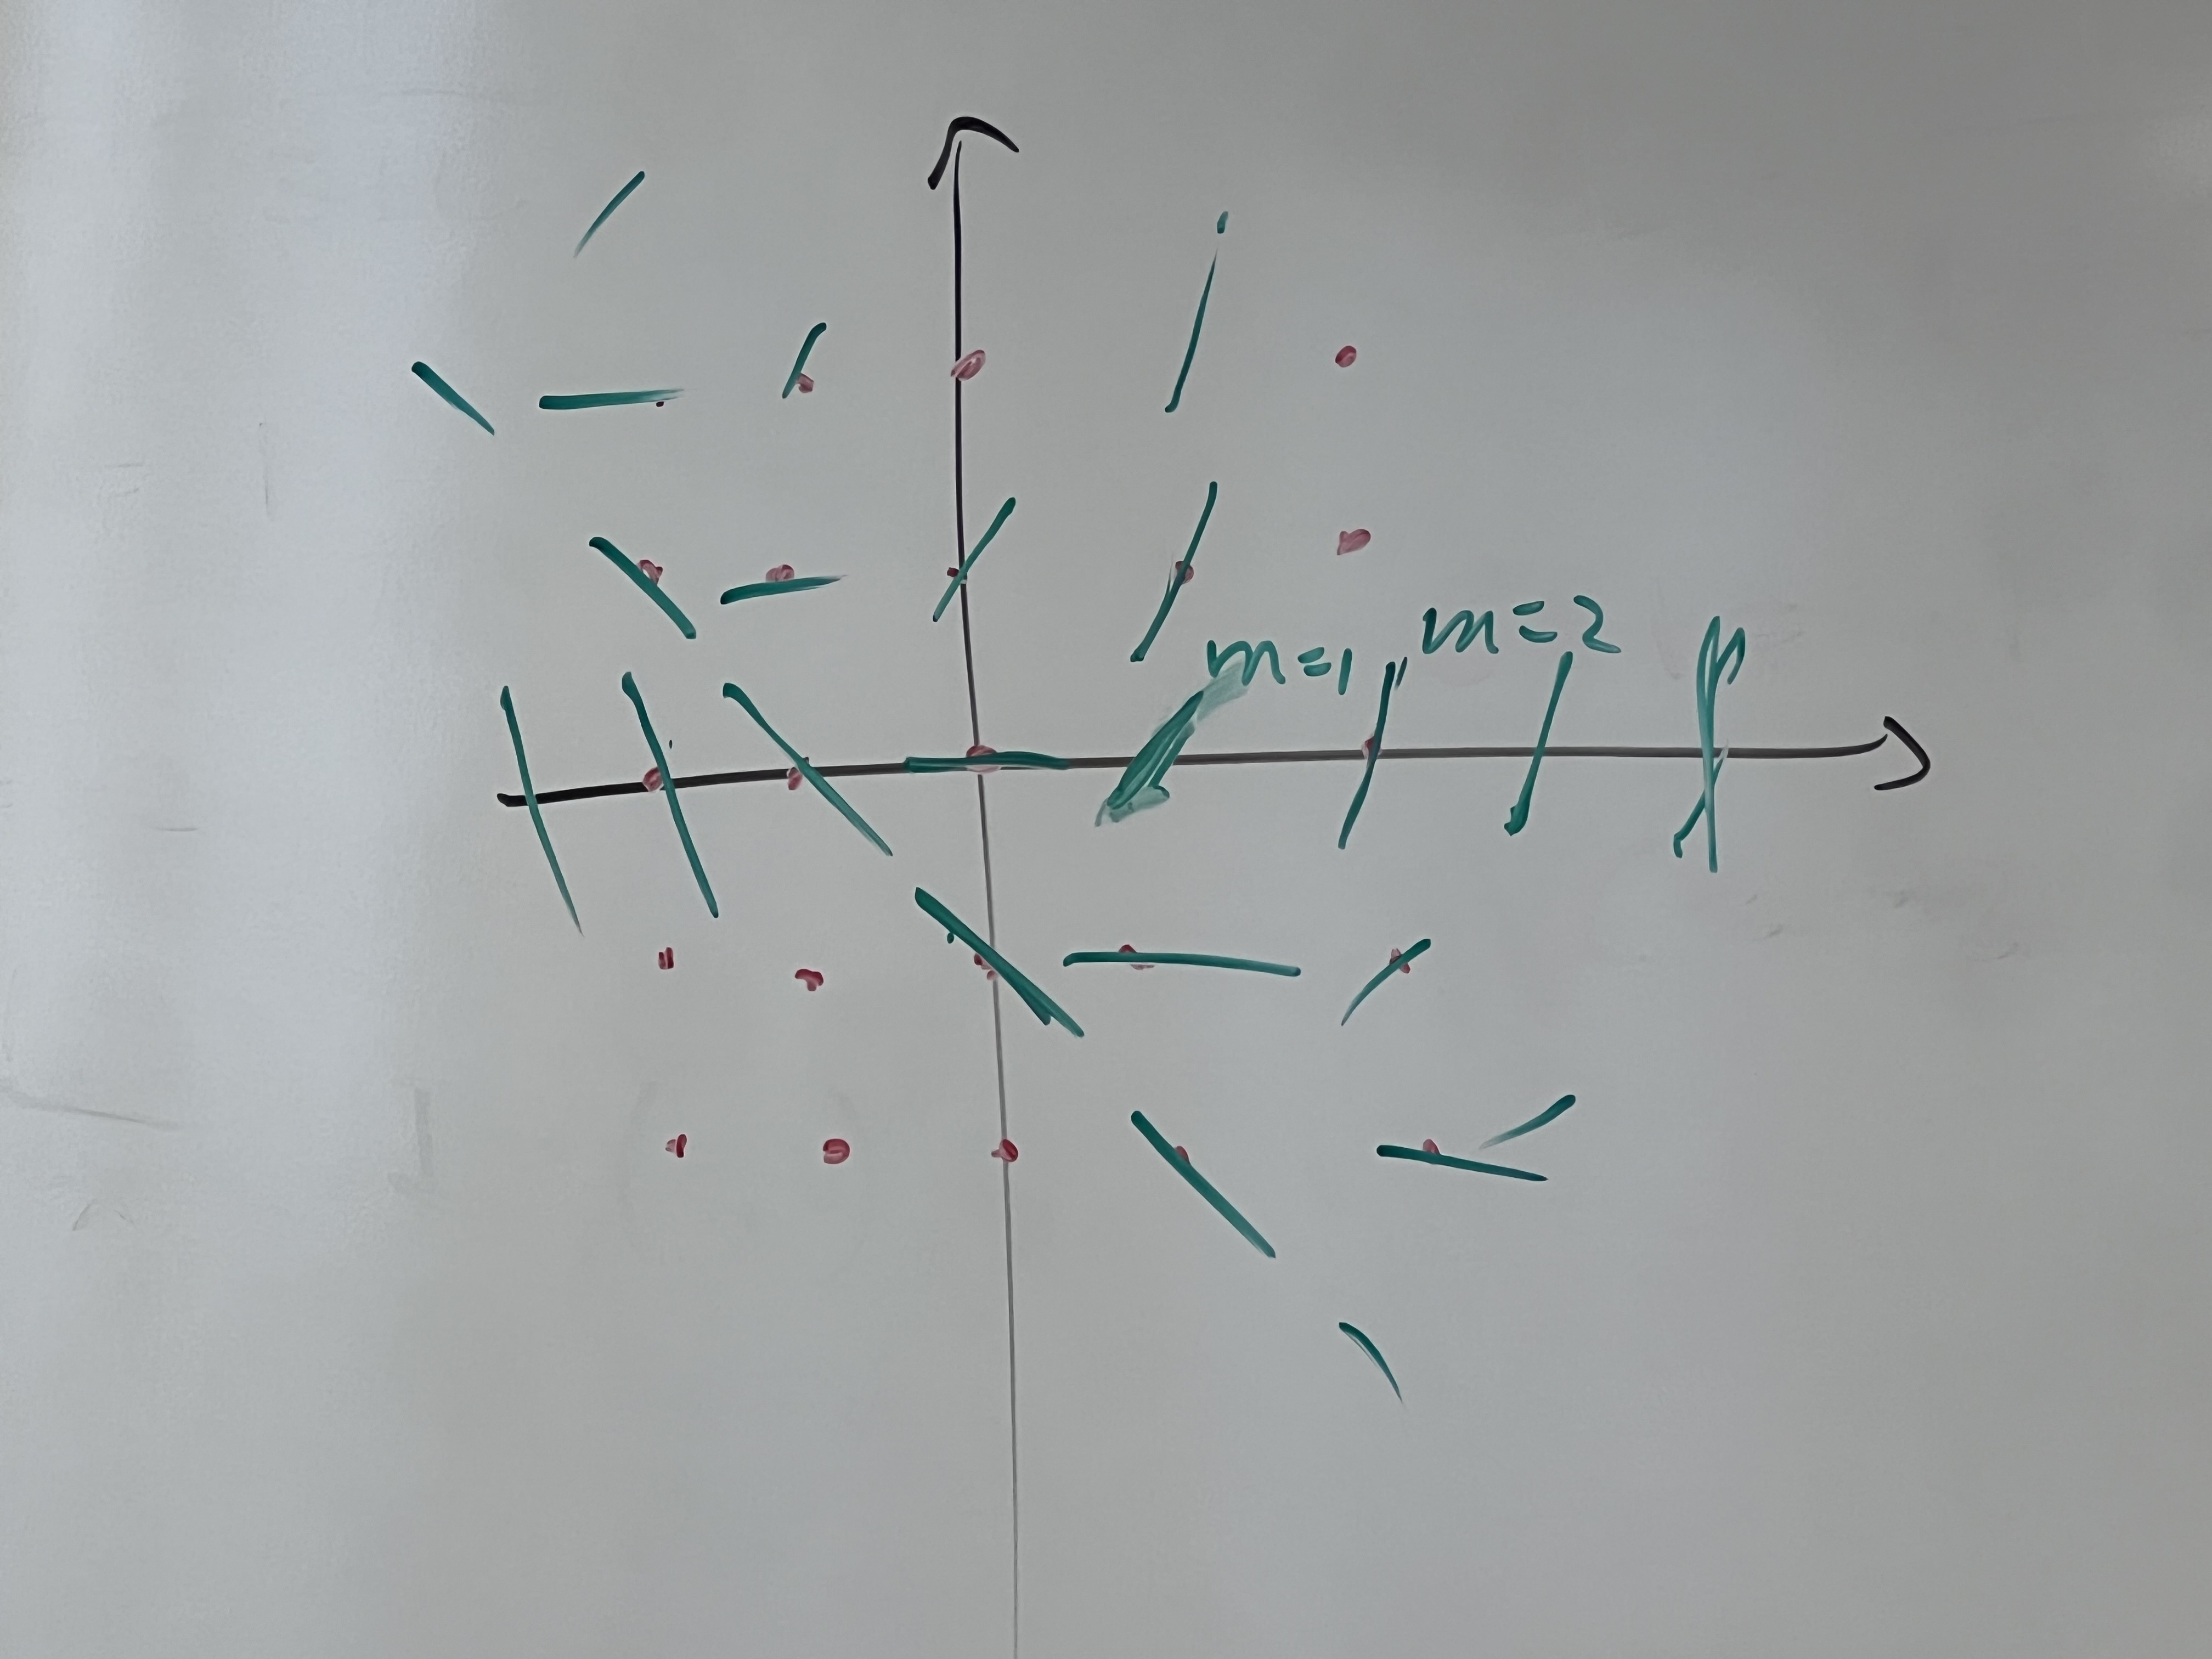 m=1
m=2